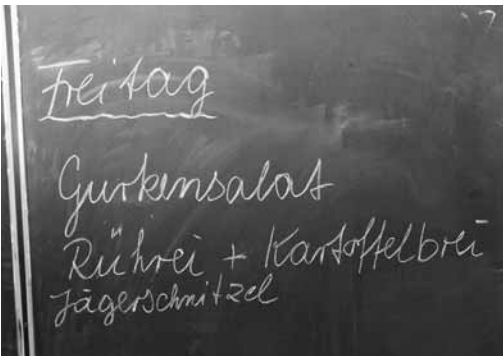 Freitag
Gurkensalat
Rührei + Kartoffelbrei
Jägerschnitzel